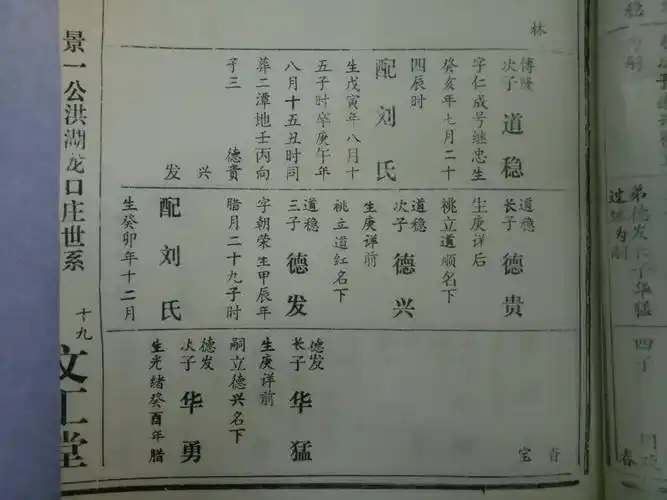 弟德发长子华猛
四子
春
林
傅隆
次子 道稳
字仁成号继忠生
癸亥年七月二十
四辰时
配刘氏
生戊寅年八月十
五子时卒庚午年
八月十五丑时同
葬二潭地壬丙向
子三 德貴
兴
发
道稳
长子 德贵
生庚详后
祧立道顺名下
道稳
次子 德兴
生庚详前
祧立道红名下
道稳
三子 德发
字朝荣生甲辰年
腊月二十九子时
配刘氏
生癸卯年十二月
春
宅
德发
长子 华猛
生庚详前
嗣立德兴名下
德发
次子 华勇
生光绪癸酉年腊
景一公洪湖龙口庄世系
十九